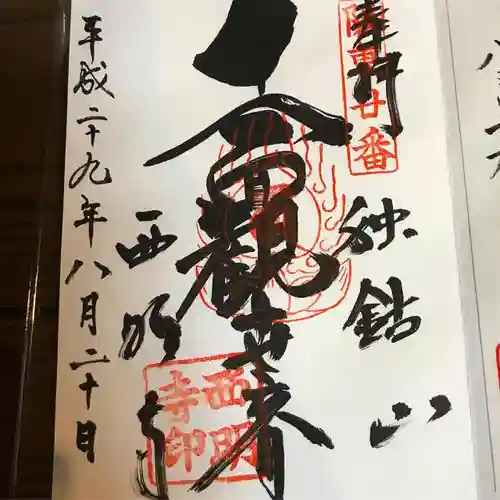 奉拝
廿番
独鈷山
観世音
西明寺
西明
寺印
平成二十九年八月二十日